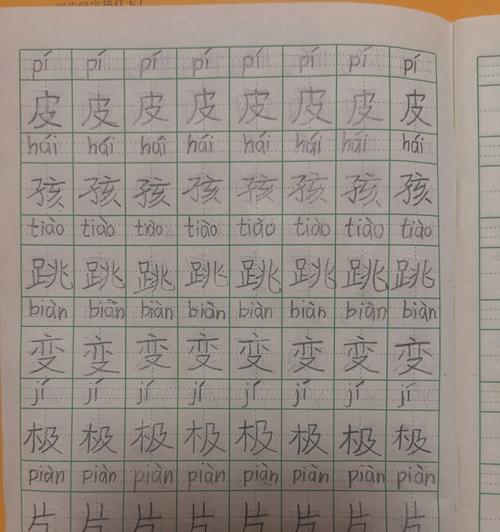 pí pí pí pí pí pí pí pí
皮 皮 皮 皮 皮 皮 皮 皮
hái hái hái hái hái hái hái hái
孩 孩 孩 孩 孩 孩 孩 孩
tiào tiào tiào tiào tiào tiào tiào tiào
跳 跳 跳 跳 跳 跳 跳 跳
biàn biàn biàn biàn biàn biàn biàn biàn
变 变 变 变 变 变 变 变
jí jí jí jí jí jí jí jí
极 极 极 极 极 极 极 极
piàn piàn piàn piàn piàn piàn piàn piàn
片 片 片 片 片 片 片 片